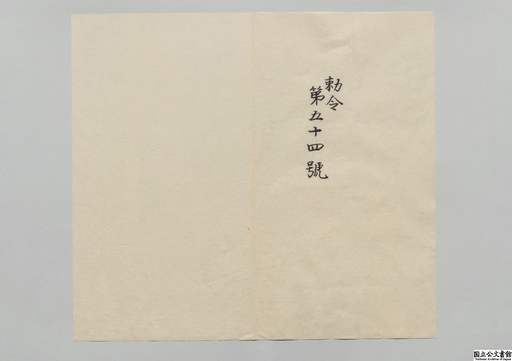 勅令
第五十四號
国立公文書館
National Archives of Japan